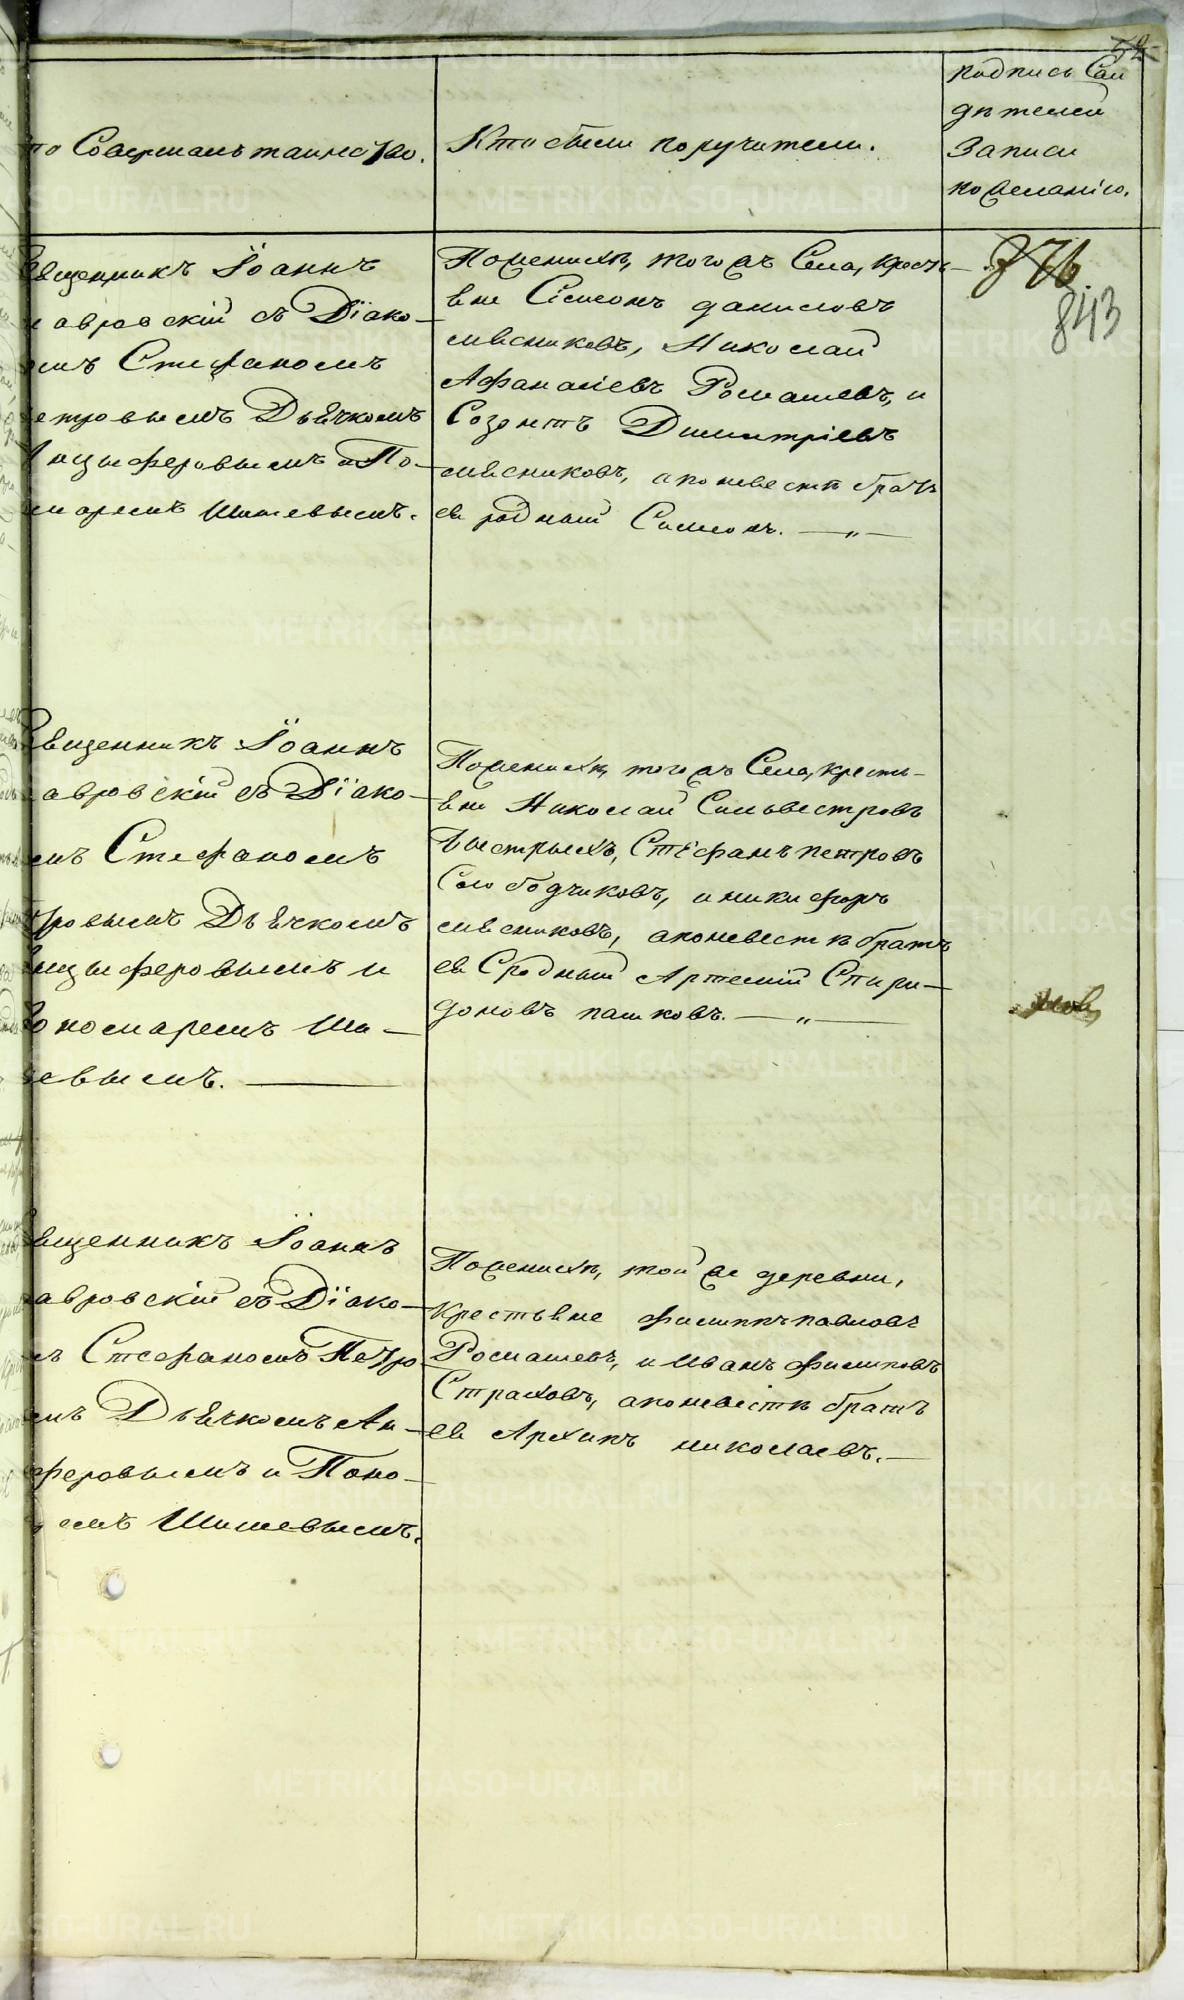 52
то Совершалъ таинство.
Кто были поручители.
подпись Сви
дѣтелей
Записи
пожеланію.
вященникъ Іоаннъ
авровскій съ Діако-
омъ Стефаномъ
етровымъ Дьячкомъ
нцыферовымъ и По-
маремъ Шишевымъ.
Поженихѣ, того жъ Села, кресть-
яне Сімеонъ даниловъ
мясниковъ, Николай
Афанасіевъ Ромашевъ, и
Созонтъ Димитріевъ
мясниковъ, а по невестѣ братъ
ея родный Симеонъ. —„—
876
843
вященникъ Іоаннъ
авровскій съ Діако-
омъ Стефаномъ
тровымъ Дьячкомъ
нцыферовымъ и
Пономаремъ Ши-
евымъ.
Поженихѣ того жъ Села, кресть-
яне Николай Сильвестровъ
Быстрыхъ, Стефанъ петровъ
Слободчиковъ, и никифоръ
мясниковъ, а по невестѣ братъ
ея Сродный Артемій Спири-
доновъ пашковъ. —„—
вященникъ Іоаннъ
авровскій съ Діако-
ъ Стефаномъ Петро
мъ Дьячкомъ Ан-
феровымъ и Поно-
емъ Шишевымъ.
Поженихѣ, той же деревни,
крестьяне филиппъ павловъ
Ромашевъ, и Иванъ филиповъ
Страховъ, а по невестѣ братъ
ея Архипъ николаевъ.—
METRIKI.GASO-URAL.RU